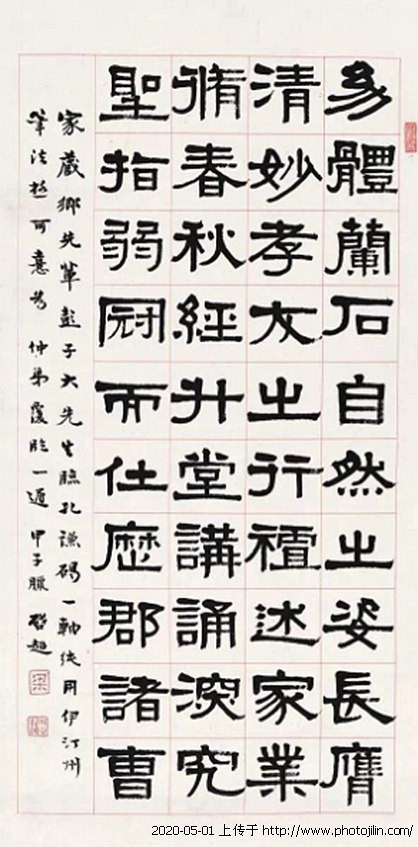 幼體蘭石自然之姿長膺
清妙孝友之行䄠述家業
脩春秋經升堂講誦深究
聖指弱冠而仕歷郡諸曹
家藏鄉先輩彭子大先生臨孔謙碣一軸純用伊汀州
筆法極可意為仲弟覆臨一過 甲子臘 啟超
2020-05-01 上传于 http://www.photojilin.com/